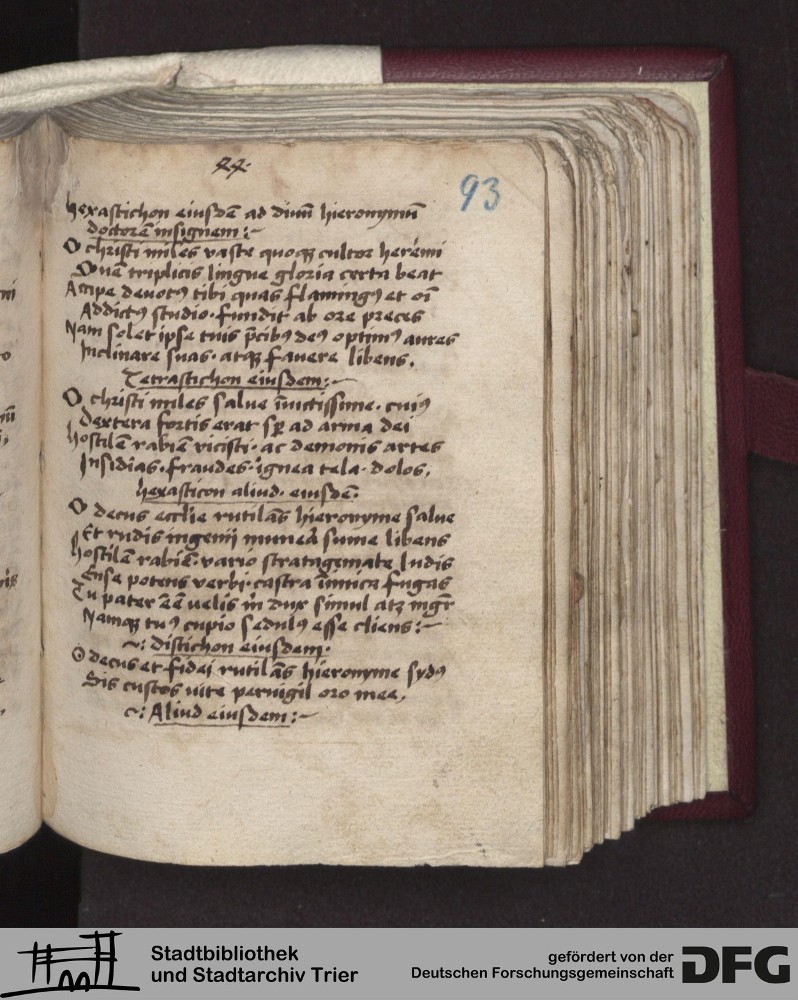 44.
93
hexastichon eiusdē ad diuū hieronymū
doctorē insignem :~
O christi miles vaste quoqꝫ cultor herēmi
Quē triplicis lingue gloria certa beat
Accipe deuotꝰ tibi quas flamingꝰ et oī
Addictꝰ studio · fundit ab ore preces
Nam solet ipse tuis p̄cibꝰ deꝰ optimꝰ aures
Inclinare suas · atqꝫ fauere libens.
Tetrastichon eiusdem :~
O christi miles salue īuictissime · cuiꝰ
Dextera fortis erat sp̄ ad arma dei
Hostilē rabiē vicisti · ac demonis artes
Insidias · fraudes · ignea tela · dolos.
hexasticon aliud · eiusdē·
O decus eccl̄ie rutilās hieronyme salue
Et rudis ingenij munera sume libens
Hostilē rabiē · vario stratagemate ludis
Ense potens verbi · castra īimica fugas
Tu pater ēē uelis m̄ dux simul atqꝫ mgr̄
Namqꝫ tuꝰ cupio sedulꝰ esse cliens :~
~: distichon eiusdem·
O decus et fidei rutilās hieronyme sydꝰ
Sis custos uite peruigil oro mee.
~: Aliud eiusdem :~
Stadtbibliothek
und Stadtarchiv Trier
gefördert von der
Deutschen Forschungsgemeinschaft
DFG